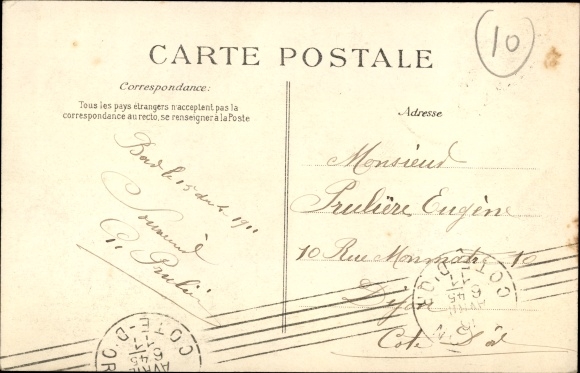 10
CARTE POSTALE
Correspondance:
Tous les pays étrangers n'acceptent pas la
correspondance au recto, se renseigner à la Poste
Adresse
1911
Souvenir
Monsieur
Prulière Eugène
10 Rue 10
Dijon
Cote d'or
COTE-D'OR
COTE-D'OR